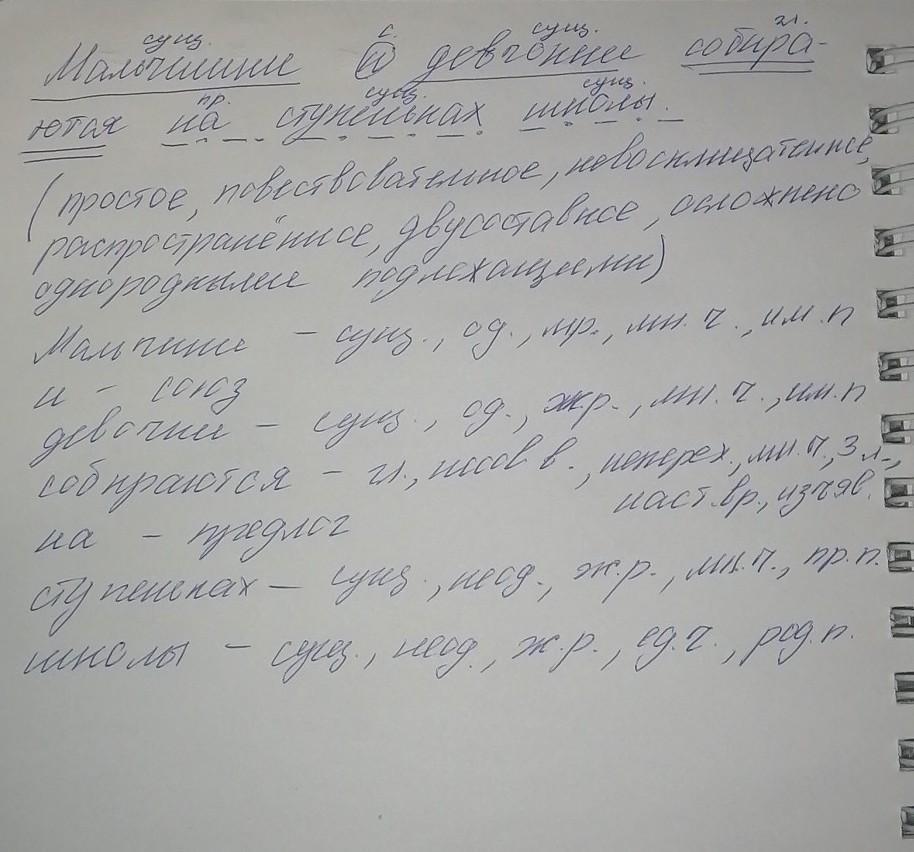 сущ. с. сущ. гл.
Мальчишки и девчонки собира-
пр. сущ. сущ.
ются на ступеньках школы.
(простое, повествовательное, невосклицательное,
распространённое, двусоставное, осложнено
однородными подлежащими)
Мальчики – сущ., од., м.р., мн.ч., им.п
и – союз
девочки – сущ., од., ж.р., мн.ч., им.п
собираются – гл., несов.в., неперех., мн.ч, 3 л.,
наст.вр., изъяв.
на – предлог
ступеньках – сущ., неод., ж.р., мн.ч., пр.п.
школы – сущ., неод., ж.р., ед.ч., род.п.